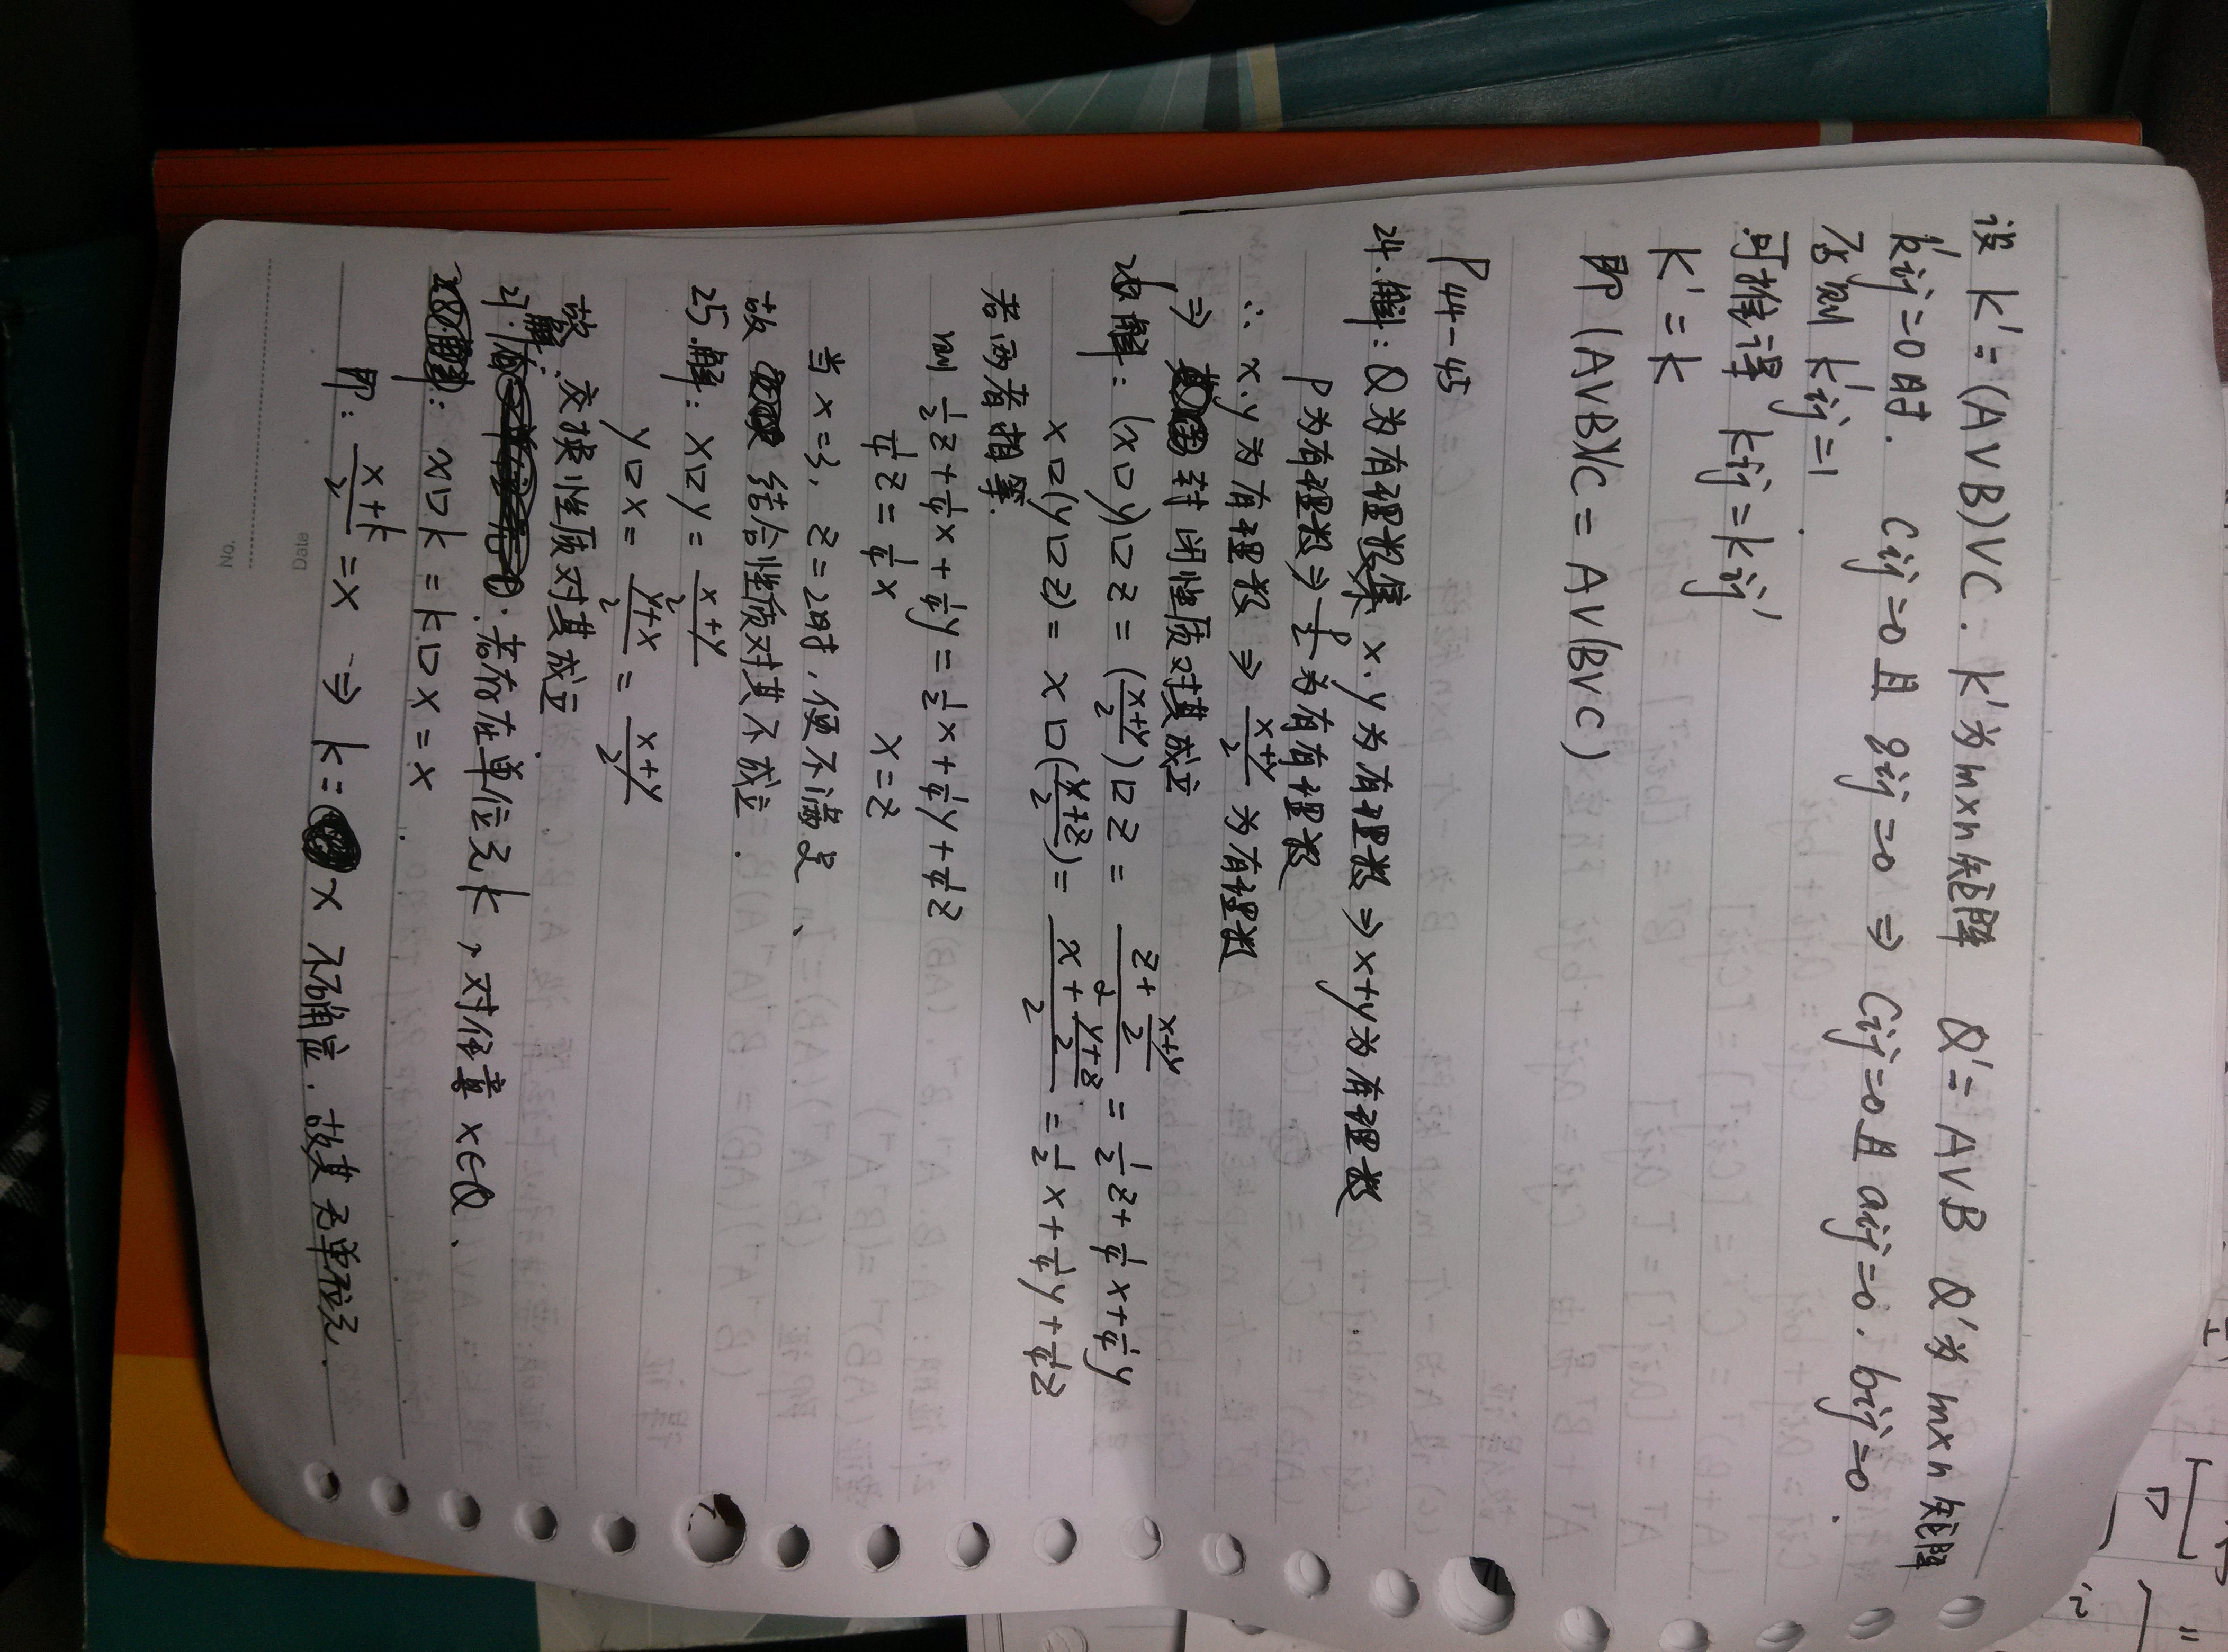 设 k' = (A∨B)∨C . k'为m×n矩阵 Q' = A∨B Q'为m×n矩阵
k'ij=0时. Cij=0且qij=0 ⇒ Cij=0且aij=0. bij=0.
否则 k'ij=1 .
可推得 kij = kij'
k' = k
即 (A∨B)∨C = A∨(B∨C)
P44-45
24.解: Q为有理数集 x.y为有理数 ⇒ x+y为有理数
P为有理数 ⇒ P/2 为有理数
∴ x.y为有理数 ⇒ (x+y)/2 为有理数
⇒ 封闭性质对其成立
解: (x□y)□z = ((x+y)/2)□z = (z+(x+y)/2)/2 = 1/2z+1/4x+1/4y
x□(y□z) = x□((y+z)/2) = (x+(y+z)/2)/2 = 1/2x+1/4y+1/4z
若两者相等.
则 1/2z+1/4x+1/4y = 1/2x+1/4y+1/4z
1/4z = 1/4x x=z
当x=3, z=2时,便不满足、
故 结合性质对其不成立.
25.解: x□y = (x+y)/2
y□x = (y+x)/2 = (x+y)/2
故 交换性质对其成立.
解: 若存在单位元k,对任意x∈Q、
x□k = k□x = x .
即: (x+k)/2 = x ⇒ k= x 不确定.故其无单位元.
No.
Date